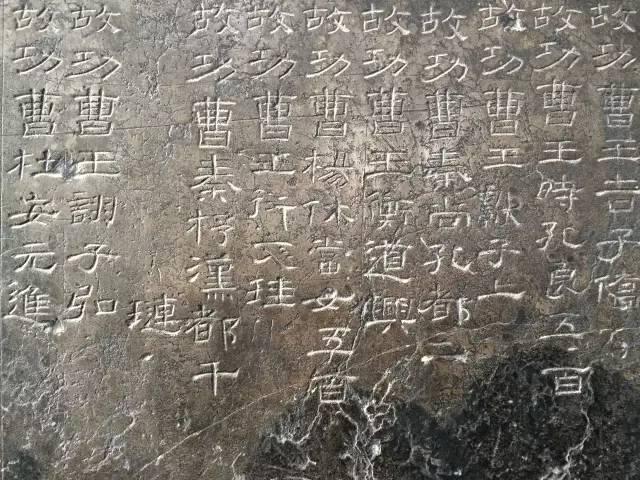 故功曹王吉子僑
故功曹王時孔良五百
故功曹王獻子上
故功曹秦尚孔都二
故功曹王衡道興
故功曹楊休當女五百
故功曹王衍文珪
故功曹秦杼漢都千
璉
故功曹王詡子弘
故功曹杜安元進